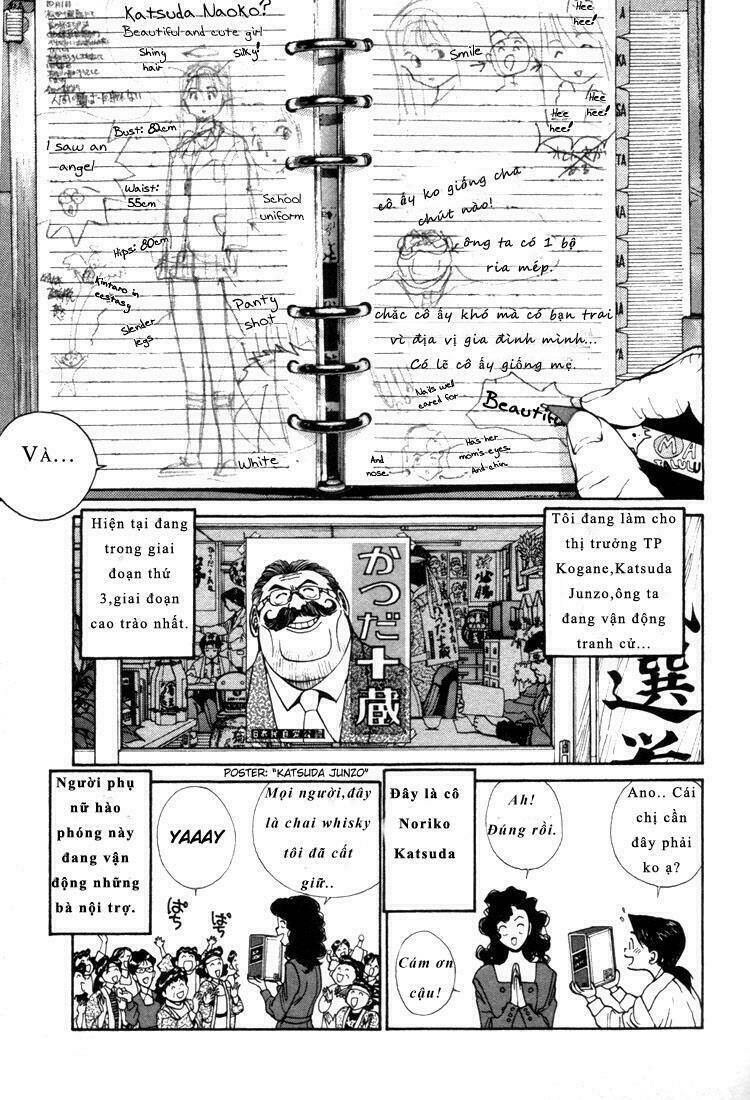 Katsuda Naoko?
Beautiful and cute girl
Shiny
hair
Silky!
Bust: 82cm
I saw an
angel
Waist:
55cm
School
uniform
Hips: 80cm
Kintaro in
ecstasy
Slender
legs
Panty
shot
White
Smile
Hee
hee!
Hee
hee!
Hee
hee!
A
KA
SA
TA
NA
cô ấy ko giống cha
chút nào!
ông ta có 1 bộ
ria mép.
chắc cô ấy khó mà có bạn trai
vì địa vị gia đình mình...
Có lẽ cô ấy giống mẹ.
Nails well
cared for
Beautifu
And
nose
Has her
mom's eyes
And chin
Và...
Tôi đang làm cho
thị trưởng TP
Kogane,Katsuda
Junzo,ông ta
đang vận động
tranh cử...
Hiện tại đang
trong giai
đoạn thứ
3,giai đoạn
cao trào nhất.
かつだ十蔵
選挙
POSTER: "KATSUDA JUNZO"
Ano.. Cái
chị cần
đây phải
ko ạ?
Ah!
Đúng rồi.
Đây là cô
Noriko
Katsuda
Cám ơn
cậu!
Mọi người,đây
là chai whisky
tôi đã cất
giữ..
YAAAY
Người phụ
nữ hào
phóng này
đang vận
động những
bà nội trợ.
ぱち
ぱち